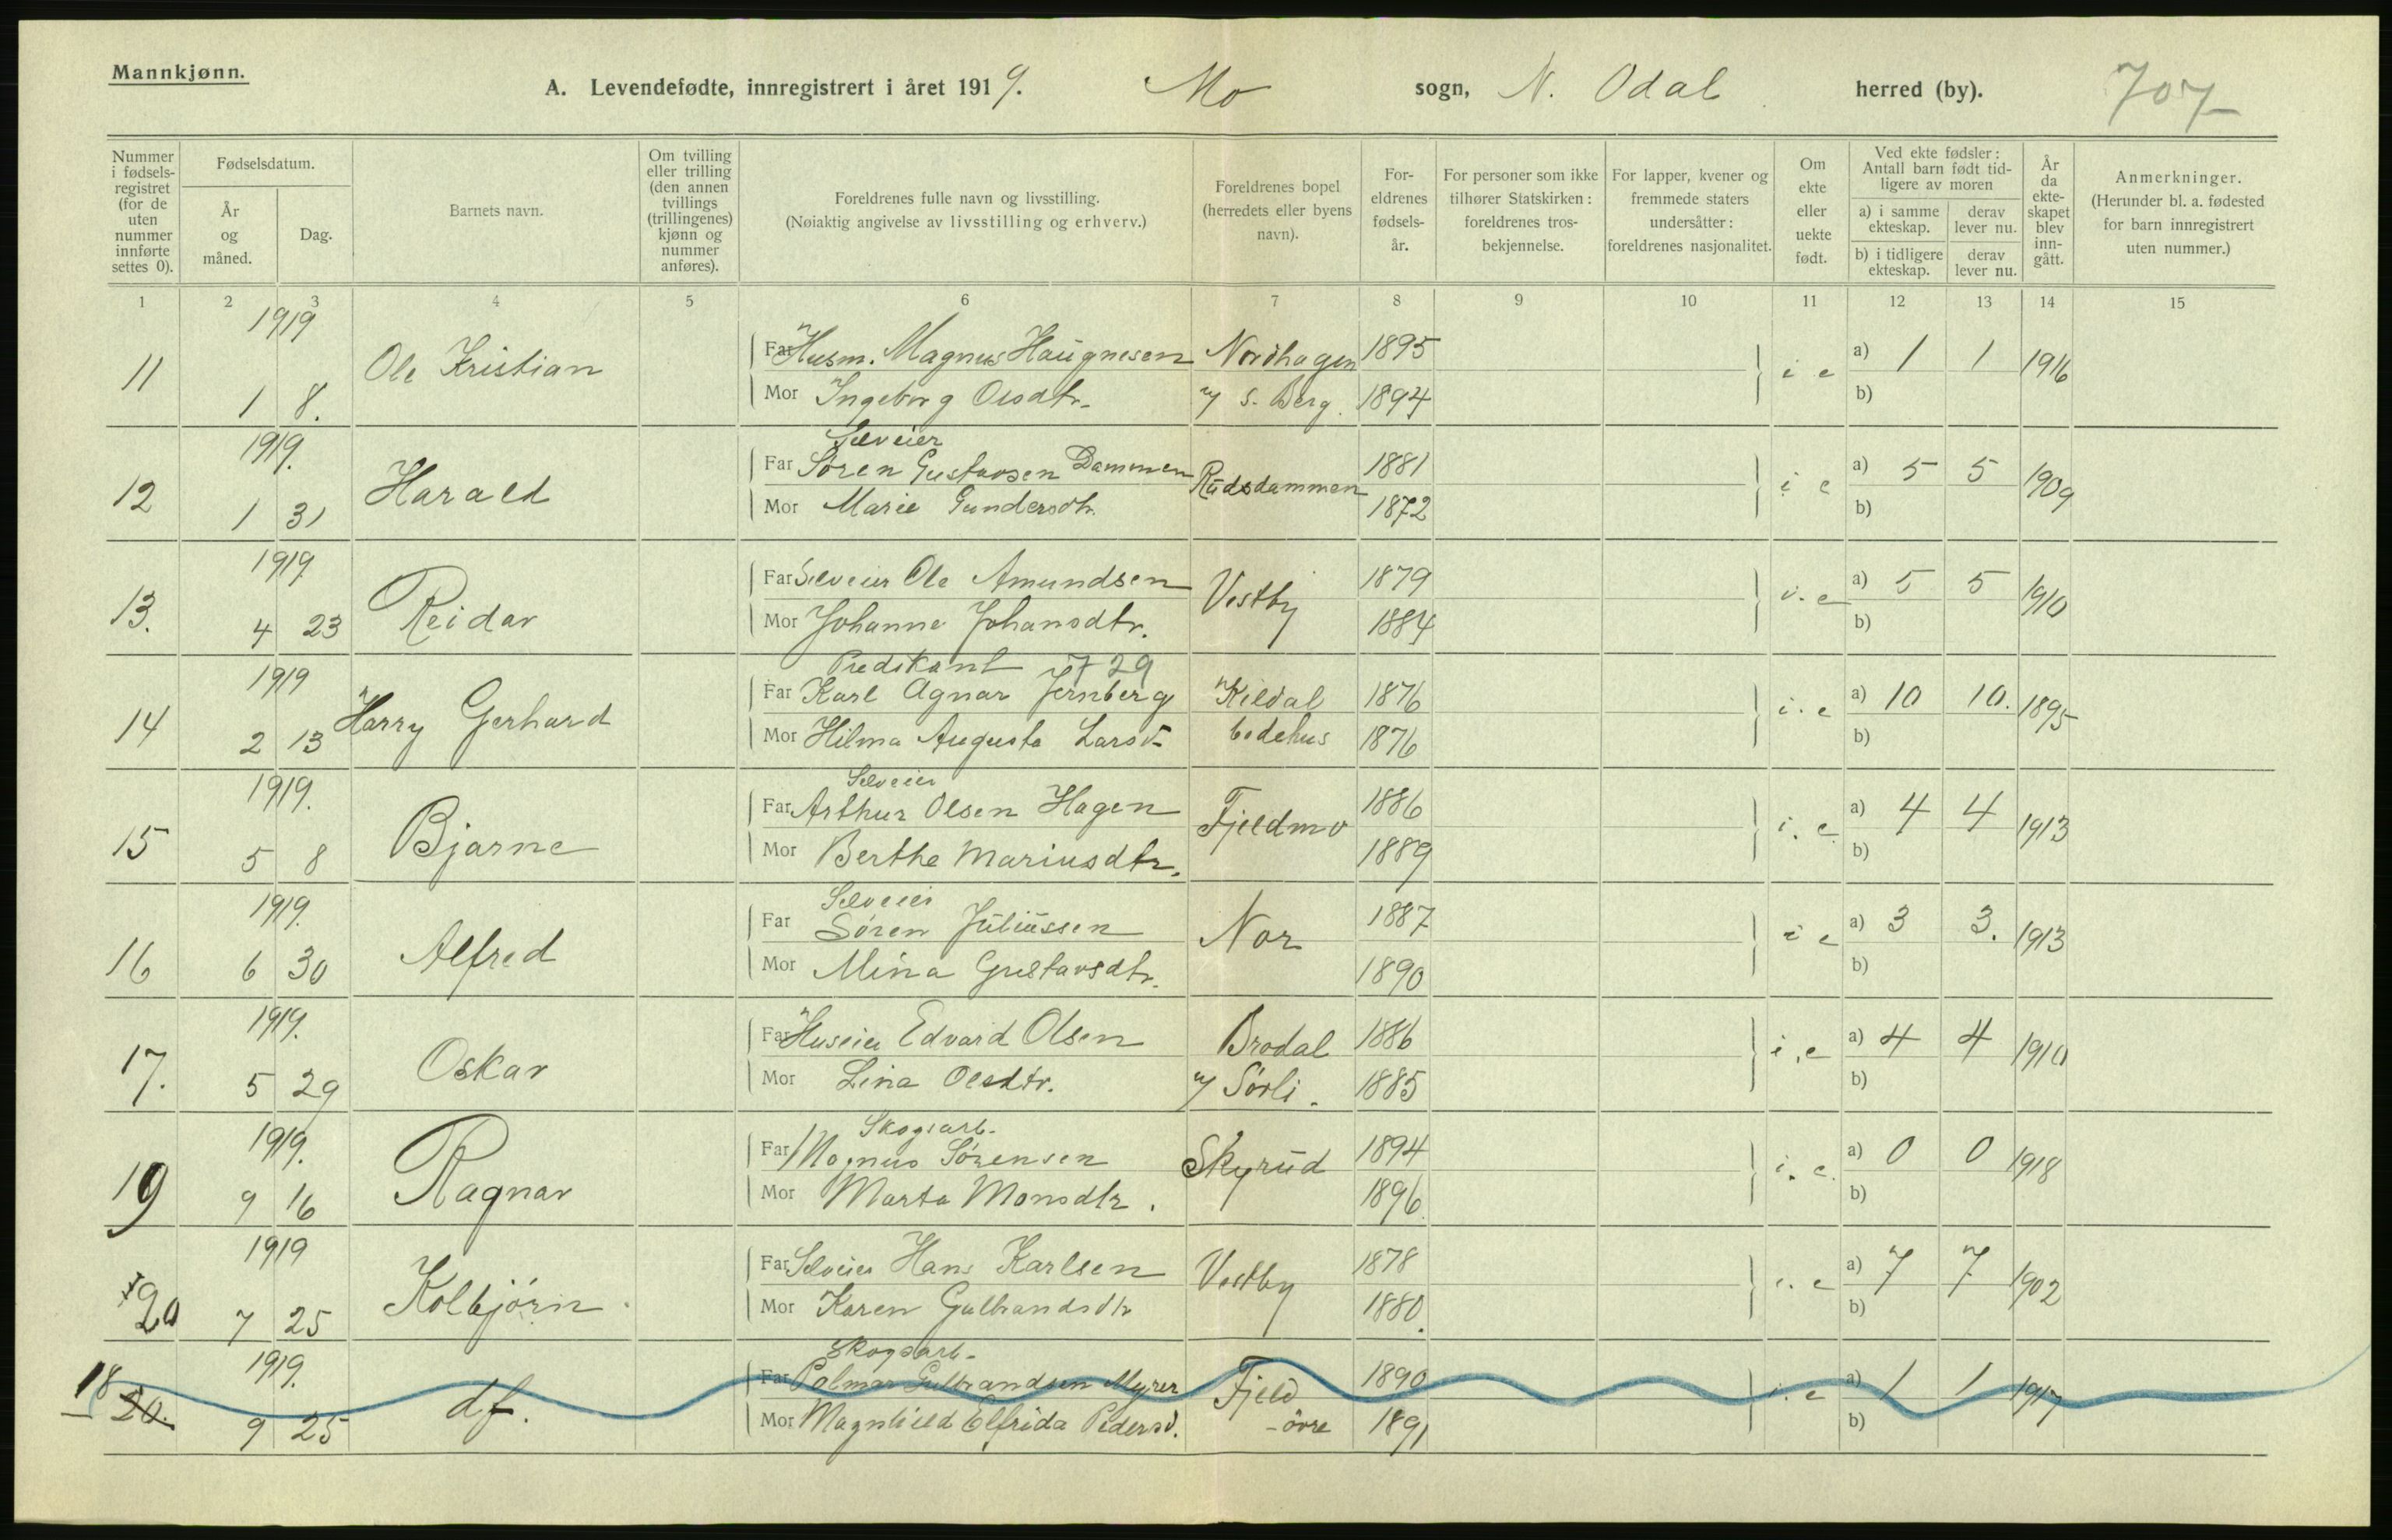 Mannkjønn.
A. Levendefødte, innregistrert i året 1919. Mo sogn, N. Odal herred (by). 707
Nummer i fødsels-registret (for de uten nummer innførte settes 0).
Fødselsdatum.
År og måned.
Dag.
Barnets navn.
Om tvilling eller trilling (den annen tvillings (trillingenes) kjønn og nummer anføres).
Foreldrenes fulle navn og livsstilling.
(Nøiaktig angivelse av livsstilling og erhverv.)
Foreldrenes bopel (herredets eller byens navn).
For-eldrenes fødsels-år.
For personer som ikke tilhører Statskirken: foreldrenes tros-bekjennelse.
For lapper, kvener og fremmede staters undersåtter: foreldrenes nasjonalitet.
Om ekte eller uekte født.
Ved ekte fødsler: Antall barn født tid-ligere av moren
a) i samme ekteskap.
derav lever nu.
b) i tidligere ekteskap.
derav lever nu.
År da ekte-skapet blev inn-gått.
Anmerkninger.
(Herunder bl. a. fødested for barn innregistrert uten nummer.)
1 2 3 4 5 6 7 8 9 10 11 12 13 14 15
1919
11 1 8. Ole Kristian
Far Husm. Magnus Haugnesen Nordhagen 1895 i e a) 1 1 1916
Mor Ingeborg Olsdtr. u/ S. Berg. 1894 b)
1919. Selveier
12 1 31 Harald
Far Søren Gustavsen Dammen Rudsdammen 1881 i e a) 5 5 1909
Mor Marie Gundersdtr. 1872 b)
1919
13. 4 23 Reidar
Far Selveier Ole Amundsen Vestby 1879 i. e a) 5 5 1910
Mor Johanne Johansdtr. 1884 b)
1919 Predikant 29
14 2 13 Harry Gerhard
Far Karl Agnar Jernberg Kildal 1876 i. e a) 10 10. 1895
Mor Hilma Augusta Larsd. bedehus 1876 b)
1919. Selveier
15 5 8 Bjarne
Far Arthur Olsen Hagen Fjeldmo 1886 i. e a) 4 4 1913
Mor Berthe Mariusdtr. 1889 b)
1919. Selveier
16 6 30 Alfred
Far Søren Juliussen Nor 1887 i e a) 3 3. 1913
Mor Mina Gustavsdtr. 1890 b)
1919.
17. 5 29 Oskar
Far Huseier Edvard Olsen Brodal 1886 i. e a) 4 4 1910
Mor Lina Olsdtr. u/ Sörli. 1885 b)
1919. Skogsarb.
19 9 16 Ragnar
Far Magnus Sørensen Skyrud 1894 i. e. a) 0 0 1918
Mor Marta Monsdtr. 1896. b)
1919
20 7 25 Kolbjörn
Far Selveier Hans Karlsen Vestby 1878 i. e a) 7 7 1902
Mor Karen Gulbrandsdtr 1880. b)
1919. Skogsarb.
18 20. 9 25 df.
Far Palmar Gulbrandsen Myrer Fjeld 1890 i. e a) 1 1 1917
Mor Magnhild Elfrida Pedersd. - övre 1891 b)